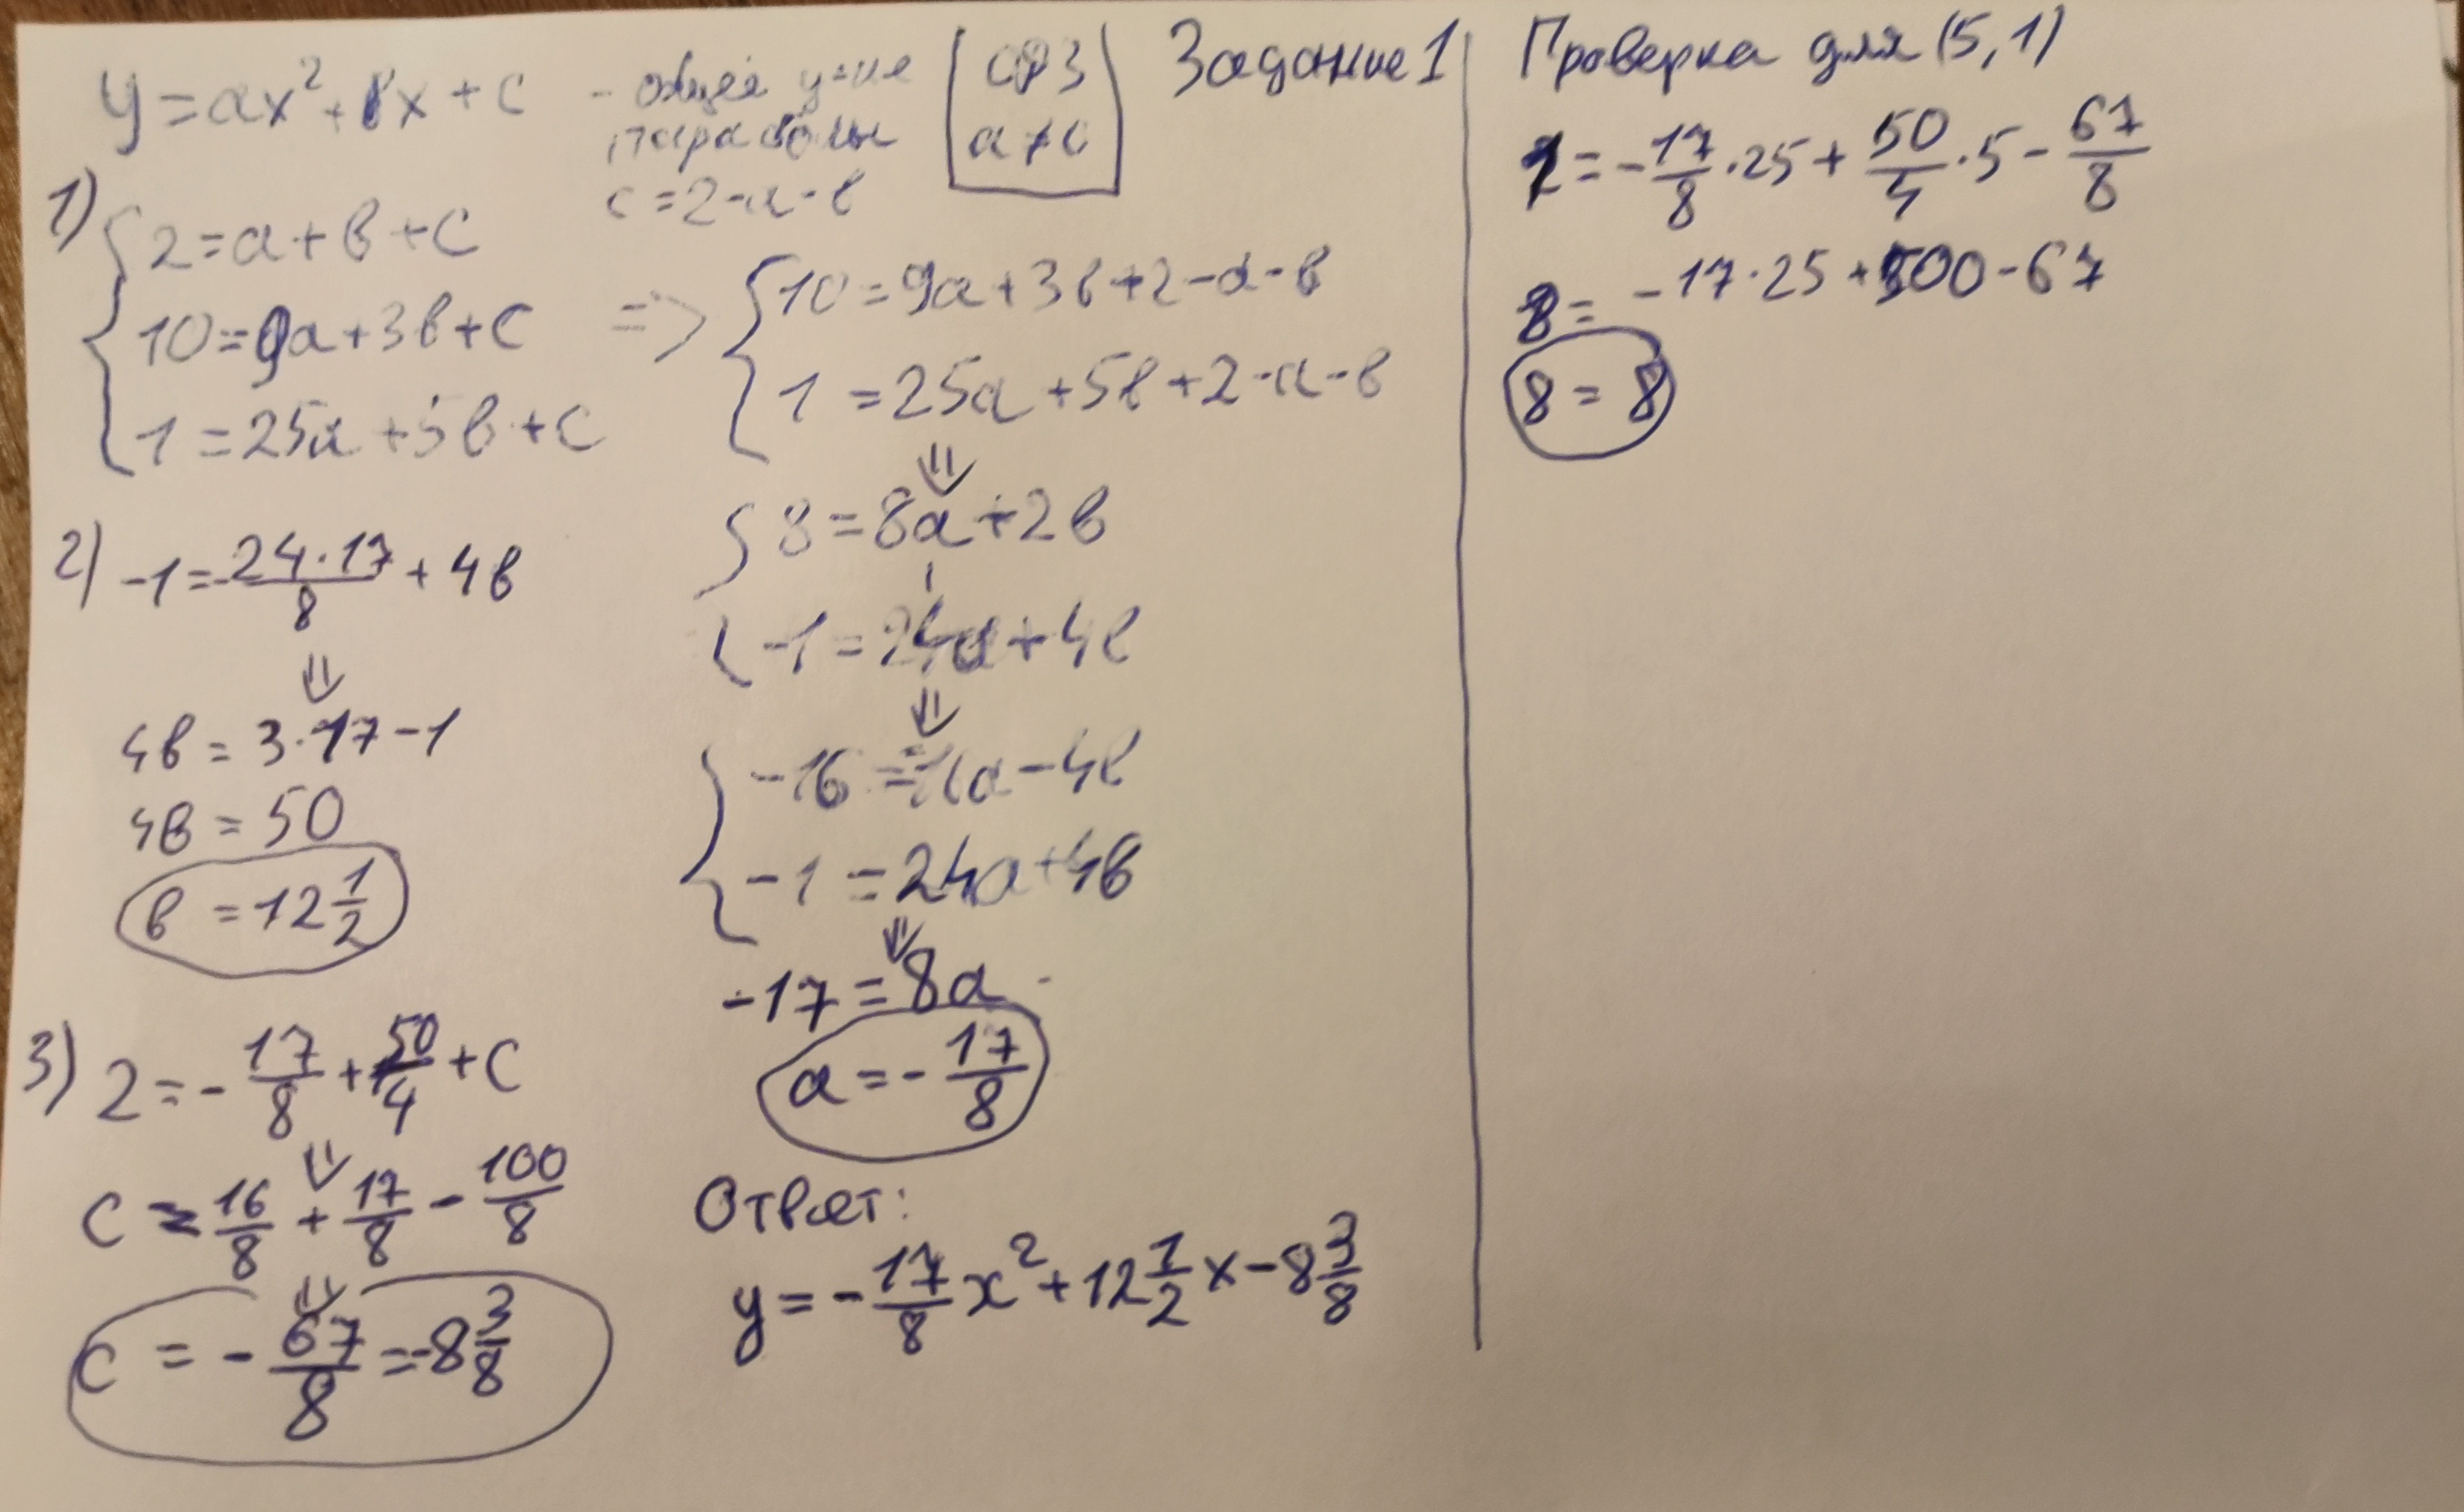 y = ax² + bx + c - общее ур-ие
параболы
СРЗ
a≠0
Задание 1
1)
c = 2 - a - b
{ 2 = a + b + c
10 = 9a + 3b + c
1 = 25a + 5b + c
=>
{ 10 = 9a + 3b + 2 - a - b
1 = 25a + 5b + 2 - a - b
⇓
{ 8 = 8a + 2b
-1 = 24a + 4b
⇓
{ -16 = -16a - 4b
-1 = 24a + 4b
⇓
-17 = 8a
a = -17/8
2) -1 = -24·17/8 + 4b
⇓
4b = 3·17 - 1
4b = 50
b = 12 1/2
3) 2 = -17/8 + 50/4 + c
⇓
c = 16/8 + 17/8 - 100/8
⇓
c = -67/8 = -8 3/8
Ответ:
y = -17/8 x² + 12 1/2 x - 8 3/8
Проверка для (5, 1)
1 = -17/8 · 25 + 50/4 · 5 - 67/8
8 = -17·25 + 500 - 67
8 = 8